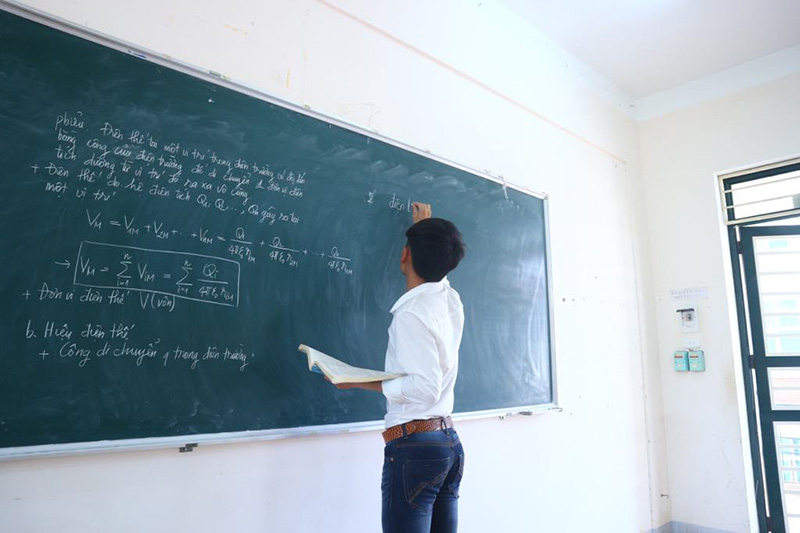 phiếu Điện thế tại một vị trí trong điện trường có độ lớn
bằng công của điện trường để di chuyển 1 đơn vị điện
tích dương từ vị trí đó ra xa vô cùng
+ Điện thế do hệ điện tích Q₁, Q₂, ..., Qₙ gây ra tại
một vị trí
V_M = V_1M + V_2M + ... + V_nM = Q₁/4πε₀r_1M + Q₂/4πε₀r_2M + ... + Qₙ/4πε₀r_nM
→ V_M = Σ_{i=1}^{n} V_iM = Σ_{i=1}^{n} Q_i/4πε₀r_iM
+ Đơn vị điện thế V (vôn)
b. Hiệu điện thế
+ Công di chuyển q trong điện trường
2 điện